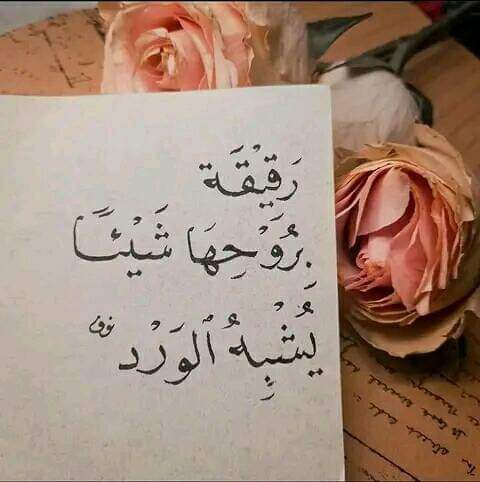 رَقِيْقَة
بِرُوَحِهَا شَيْئًا
يُشْبِهُ ٱلوَرْد